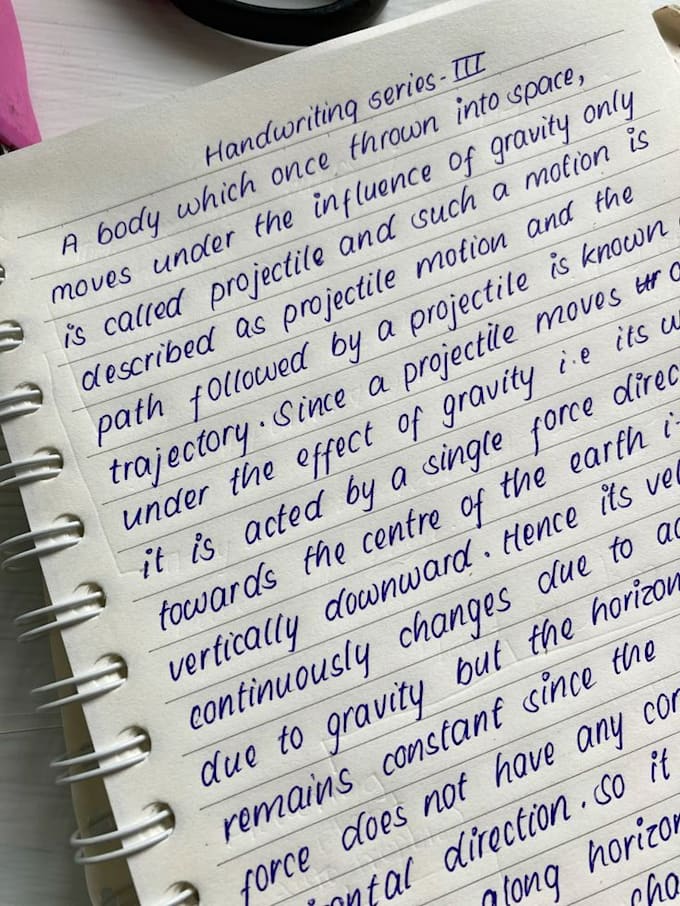 Handwriting series-III
A body which once thrown into space,
moves under the influence of gravity only
is called projectile and such a motion is
described as projectile motion and the
path followed by a projectile is known
trajectory. Since a projectile moves
under the effect of gravity i.e its
it is acted by a single force direc
towards the centre of the earth i
vertically downward. Hence its vel
continuously changes due to ac
due to gravity but the horizon
remains constant since the
force does not have any cor
ontal direction. So it
along horizon
cha